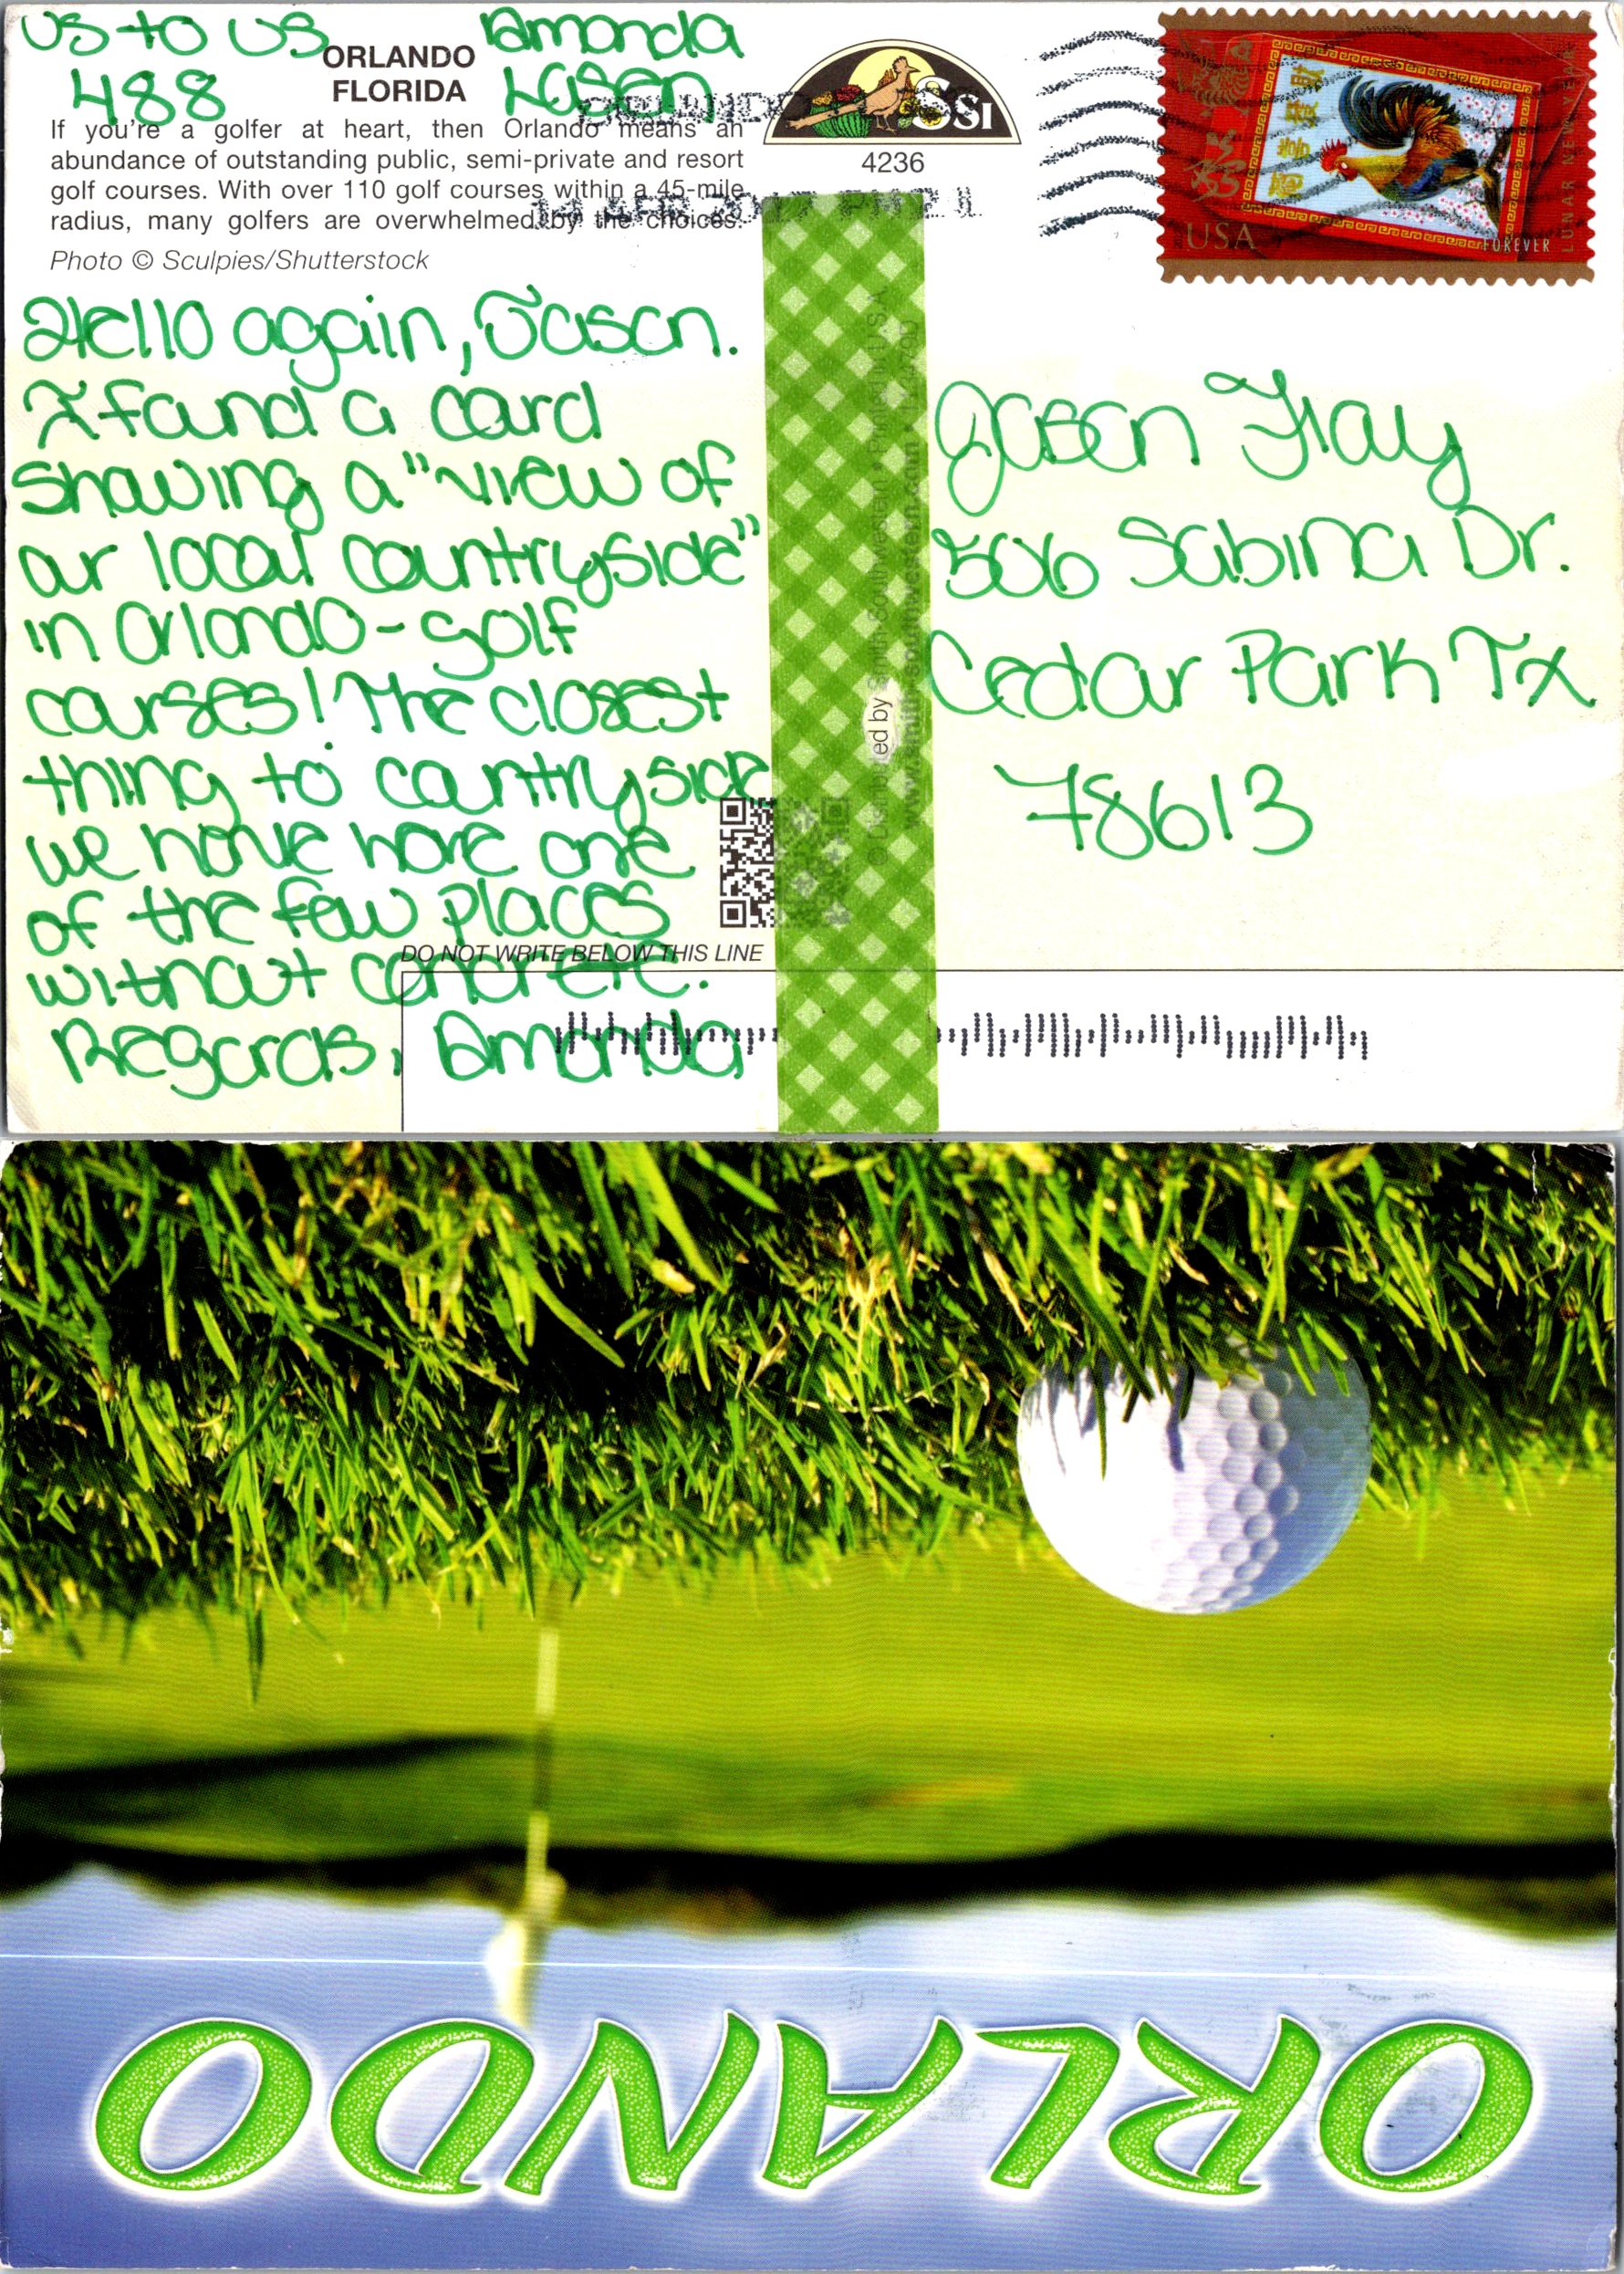 US to US
488
Amanda
Lasen
ORLANDO
FLORIDA
If you're a golfer at heart, then Orlando means an
abundance of outstanding public, semi-private and resort
golf courses. With over 110 golf courses within a 45-mile
radius, many golfers are overwhelmed by the choices.
Photo © Sculpies/Shutterstock
SSI
4236
USA
FOREVER
LUNAR NEW YEAR
Hello again, Jason.
I found a card
showing a "view of
our local countryside"
in Orlando - golf
courses! The closest
thing to countryside
we have here are
of the few places
without concrete.
Regards, Amanda
Jason Fray
506 Sabina Dr.
Cedar Park TX
78613
DO NOT WRITE BELOW THIS LINE
ORLANDO